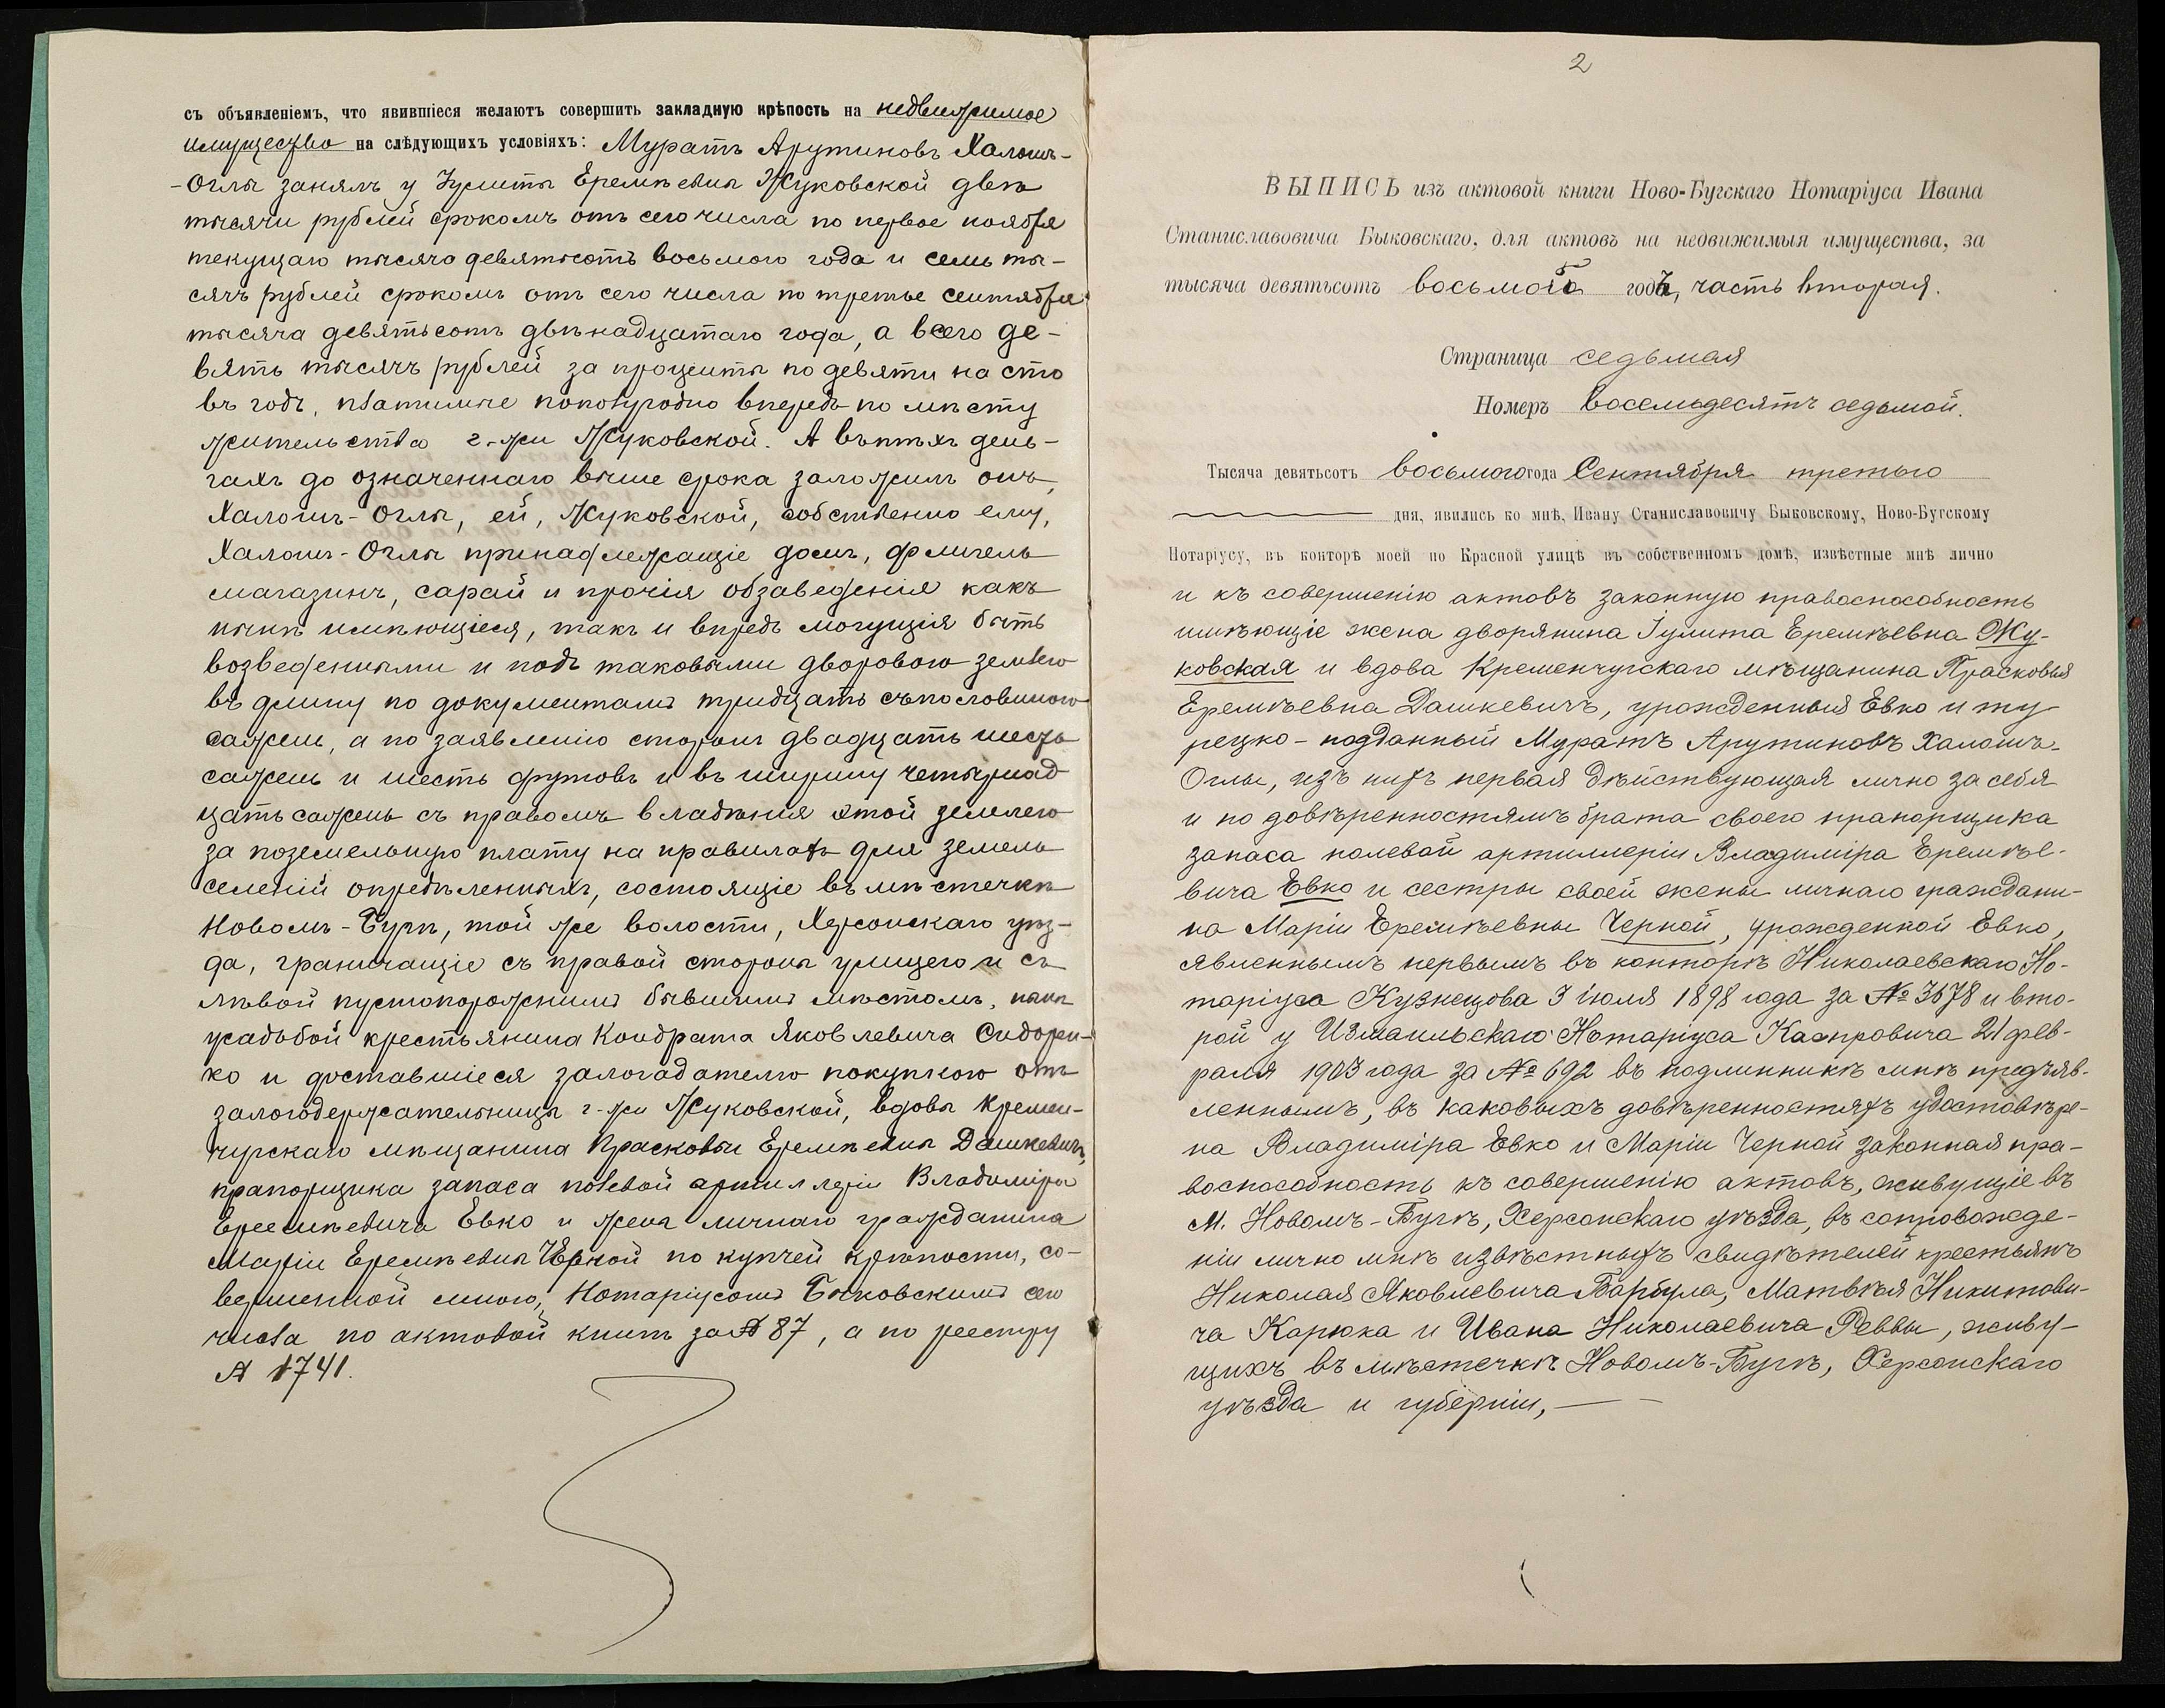 съ объявленіемъ, что явившіеся желаютъ совершить закладную крѣпость на недвижимое
имущество на слѣдующихъ условіяхъ: Муратъ Арутиновъ Халошъ-
-Оглы занялъ у Іулиты Еремѣевны Жуковской двѣ
тысячи рублей срокомъ отъ сего числа по первое ноября
текущаго тысяча девятьсотъ восьмого года и семь ты-
сячъ рублей срокомъ отъ сего числа по третье сентября
тысяча девятьсотъ двѣнадцатаго года, а всего де-
вять тысячъ рублей за проценты по девяти на сто
въ годъ, платимые пополугодно впередъ по мѣсту
жительства г-жи Жуковской. А въ тѣхъ день-
гахъ до означеннаго выше срока заложилъ онъ,
Халошъ-Оглы, ей, Жуковской, собственно ему,
Халошъ-Оглы принадлежащіе домъ, флигель
магазинъ, сарай и прочія обзаведенія какъ
нынѣ имѣющіеся, такъ и впредь могущія быть
возведенными и подъ таковыми дворовою землею
въ длину по документамъ тридцать съ половиною
сажень, а по заявленію сторонъ двадцать шесть
сажень и шесть футовъ и въ ширину четырнад
цать сажень съ правомъ владѣнія этой землею
за поземельную плату на правилахъ для земель
селеній опредѣленныхъ, состоящіе въ мѣстечкѣ
Новомъ-Бугѣ, той же волости, Херсонскаго уѣз-
да, граничащіе съ правой стороны улицею и съ
лѣвой пустопорожнимъ бывшимъ мѣстомъ, нынѣ
усадьбой крестьянина Кондрата Яковлевича Сидорен-
ко и доставшіеся залогодателю покупкою отъ
залогодержательницы г-жи Жуковской, вдовы Кремен-
чугскаго мѣщанина Прасковьи Еремѣевны Дашкевичъ,
прапорщика запаса полевой артиллеріи Владиміра
Еремѣевича Евко и жены личнаго гражданина
Маріи Еремѣевны Черной по купчей крѣпости, со-
вершенной мною, Нотаріусомъ Быковскимъ сего
числа по актовой книгѣ за № 87, а по реестру
№ 1741.
2
ВЫПИСЬ изъ актовой книги Ново-Бугскаго Нотаріуса Ивана
Станиславовича Быковскаго, для актовъ на недвижимыя имущества, за
тысяча девятьсотъ восьмой годъ, часть вторая.
Страница седьмая
Номеръ восемьдесятъ седьмой.
Тысяча девятьсотъ восьмого года Сентября третьяго
дня, явились ко мнѣ, Ивану Станиславовичу Быковскому, Ново-Бугскому
Нотаріусу, въ конторѣ моей по Красной улицѣ въ собственномъ домѣ, извѣстные мнѣ лично
и къ совершенію актовъ законную правоспособность
имѣющіе жена дворянина Іулита Еремѣевна Жу-
ковская и вдова Кременчугскаго мѣщанина Прасковья
Еремѣевна Дашкевичъ, урожденныя Евко и ту
рецко-подданный Муратъ Арутиновъ Халошъ-
Оглы, изъ нихъ первая дѣйствующая лично за себя
и по довѣренностямъ брата своего прапорщика
запаса полевой артиллеріи Владиміра Еремѣе-
вича Евко и сестры своей жены личнаго граждани-
на Маріи Еремѣевны Черной, урожденной Евко,
явленнымъ первымъ въ конторѣ Николаевскаго Но-
таріуса Кузнецова 3 іюля 1898 года за № 3678 и вто-
рой у Измаильскаго Нотаріуса Каспровича 21 фев-
раля 1903 года за № 692 въ подлинникѣ мнѣ предъяв-
леннымъ, въ каковыхъ довѣренностяхъ удостовѣре-
на Владиміра Евко и Маріи Черной законная пра-
воспособность къ совершенію актовъ, живущіе въ
м. Новомъ-Бугѣ, Херсонскаго уѣзда, въ сопровожде-
ніи лично мнѣ извѣстныхъ свидѣтелей крестьянъ
Николая Яковлевича Барбула, Матвѣя Никитови-
ча Карюка и Ивана Николаевича Реввы, живу-
щихъ въ мѣстечкѣ Новомъ-Бугѣ, Херсонскаго
уѣзда и губерніи,